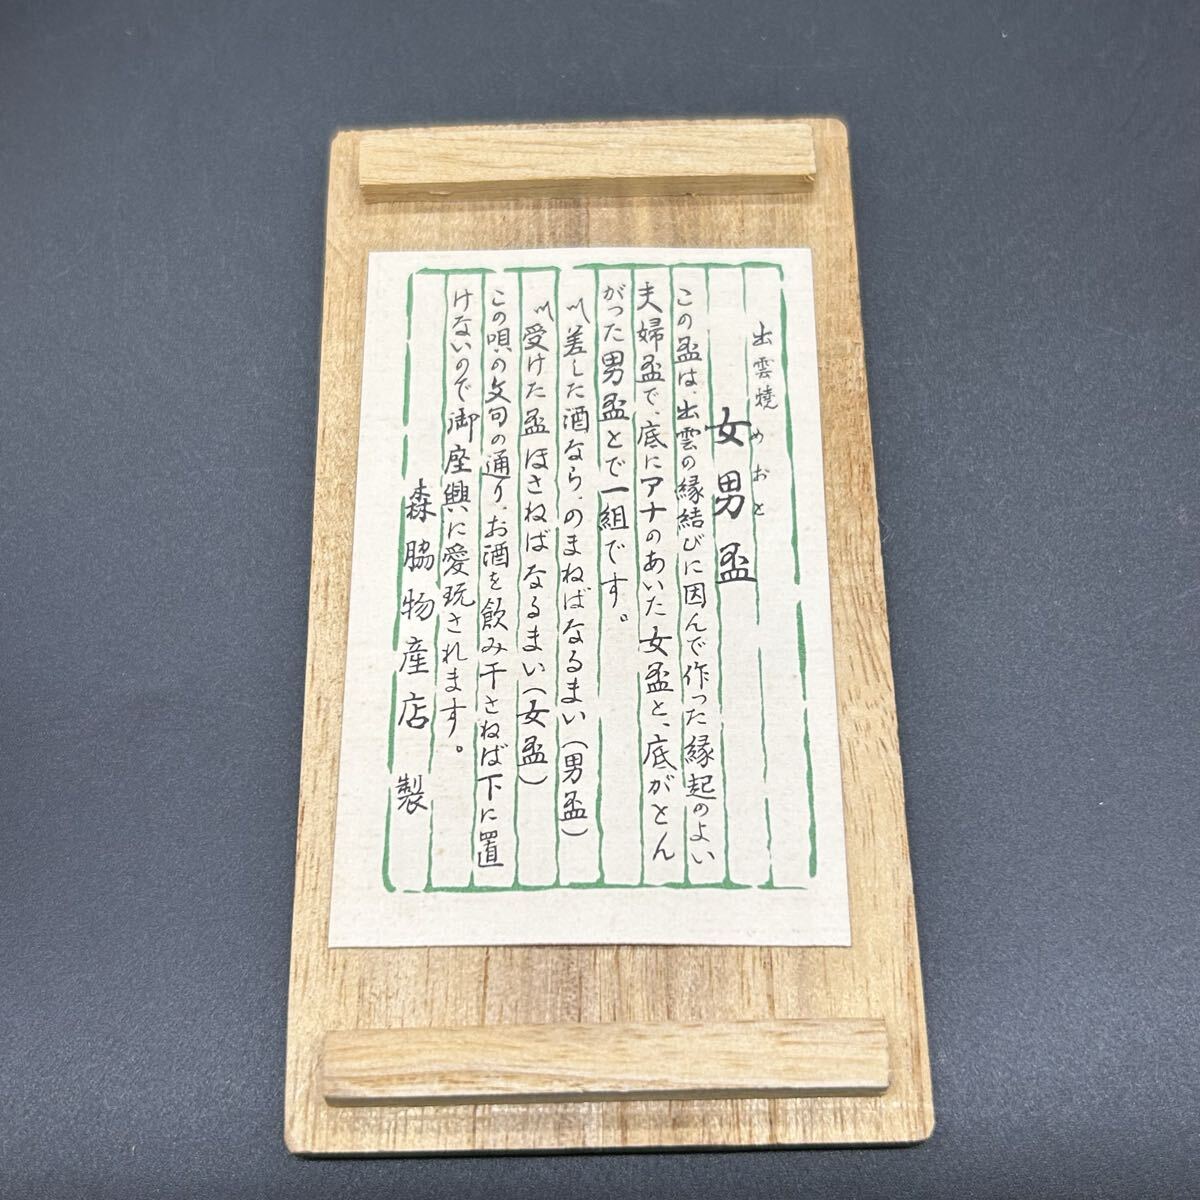 出雲焼
めおと
女男盃
この盃は、出雲の縁結びに因んで作った縁起のよい
夫婦盃で、底にアナのあいた女盃と、底がとん
がった男盃とで一組です。
〽差した酒なら、のまねばなるまい(男盃)
〽受けた盃ほさねばなるまい(女盃)
この唄の文句の通り、お酒を飲み干さねば下に置
けないので御座興に愛玩されます。
森脇物産店 製